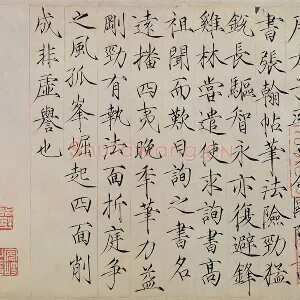 書張翰帖筆法險勁猛
銳長驅智永亦復避鋒
雞林嘗遣使求詢書高
祖聞而歎曰詢之書名
遠播四夷晚秊筆力益
剛勁有執法面折庭爭
之風孤峯崛起四面削
成非虛譽也